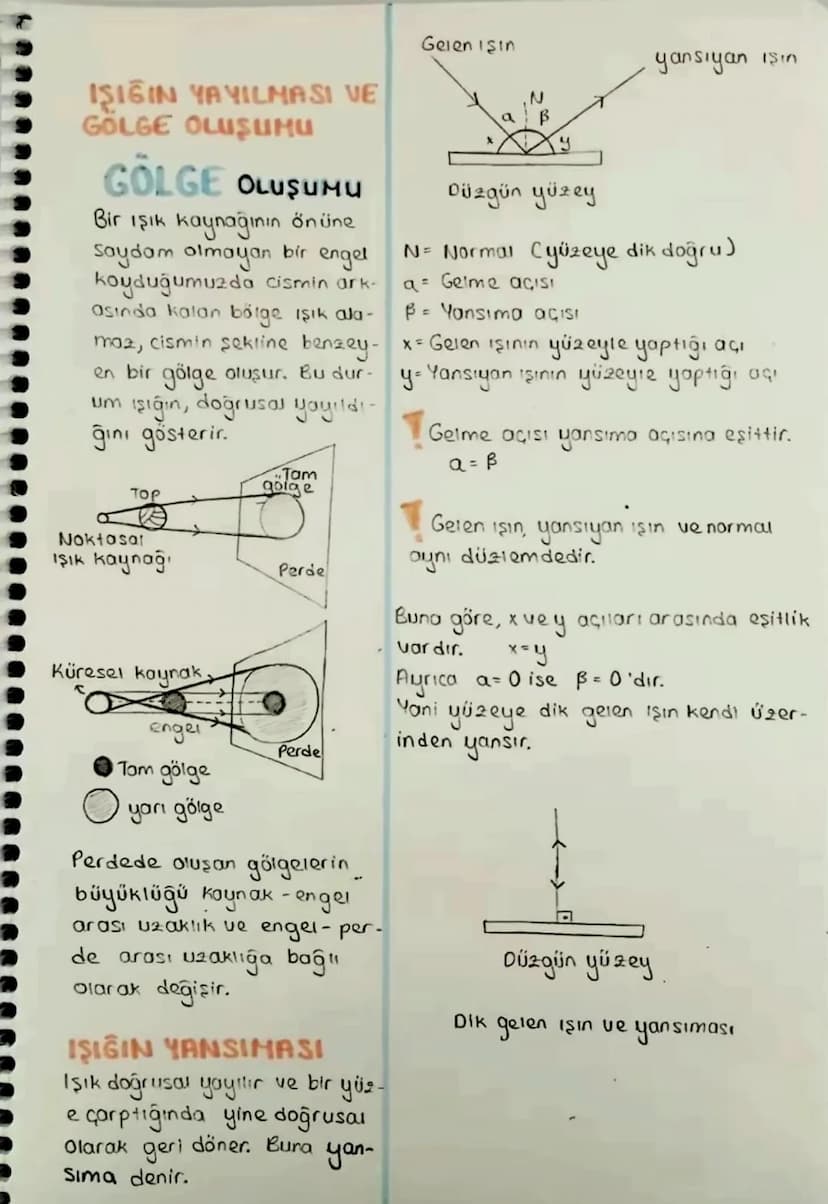 IŞIĞIN YAYILMASI VE
GÖLGE OLUŞUMU
GÖLGE OLUŞUMU
Bir ışık kaynağının önüne
saydam olmayan bir engel
koyduğumuzda cismin ark-
asında kalan bölge ışık ala-
maz, cismin şekline benzey-
en bir gölge oluşur. Bu dur-
um ışığın, doğrusal yayıldı-
ğını gösterir.
Top
Tam
gölge
Noktasal
ışık kaynağı
Perde
Küresel kaynak
engel
Perde
Tam gölge
yarı gölge
Perdede oluşan gölgelerin
büyüklüğü kaynak-engel
arası uzaklık ve engel-per-
de arası uzaklığa bağlı
olarak değişir.
IŞIĞIN YANSIMASI
Işık doğrusal yayılır ve bir yüz-
e çarptığında yine doğrusal
olarak geri döner. Buna yan-
sıma denir.
Gelen ışın
yansıyan ışın
N
α β
x y
Düzgün yüzey
N= Normal (yüzeye dik doğru)
α= Gelme açısı
β= Yansıma açısı
x= Gelen ışının yüzeyle yaptığı açı
y= Yansıyan ışının yüzeyle yaptığı açı
! Gelme açısı yansıma açısına eşittir.
α=β
! Gelen ışın, yansıyan ışın ve normal
aynı düzlemdedir.
Buna göre, x ve y açıları arasında eşitlik
vardır. x=y
Ayrıca α=0 ise β=0'dır.
Yani yüzeye dik gelen ışın kendi üzer-
inden yansır.
Düzgün yüzey
Dik gelen ışın ve yansıması